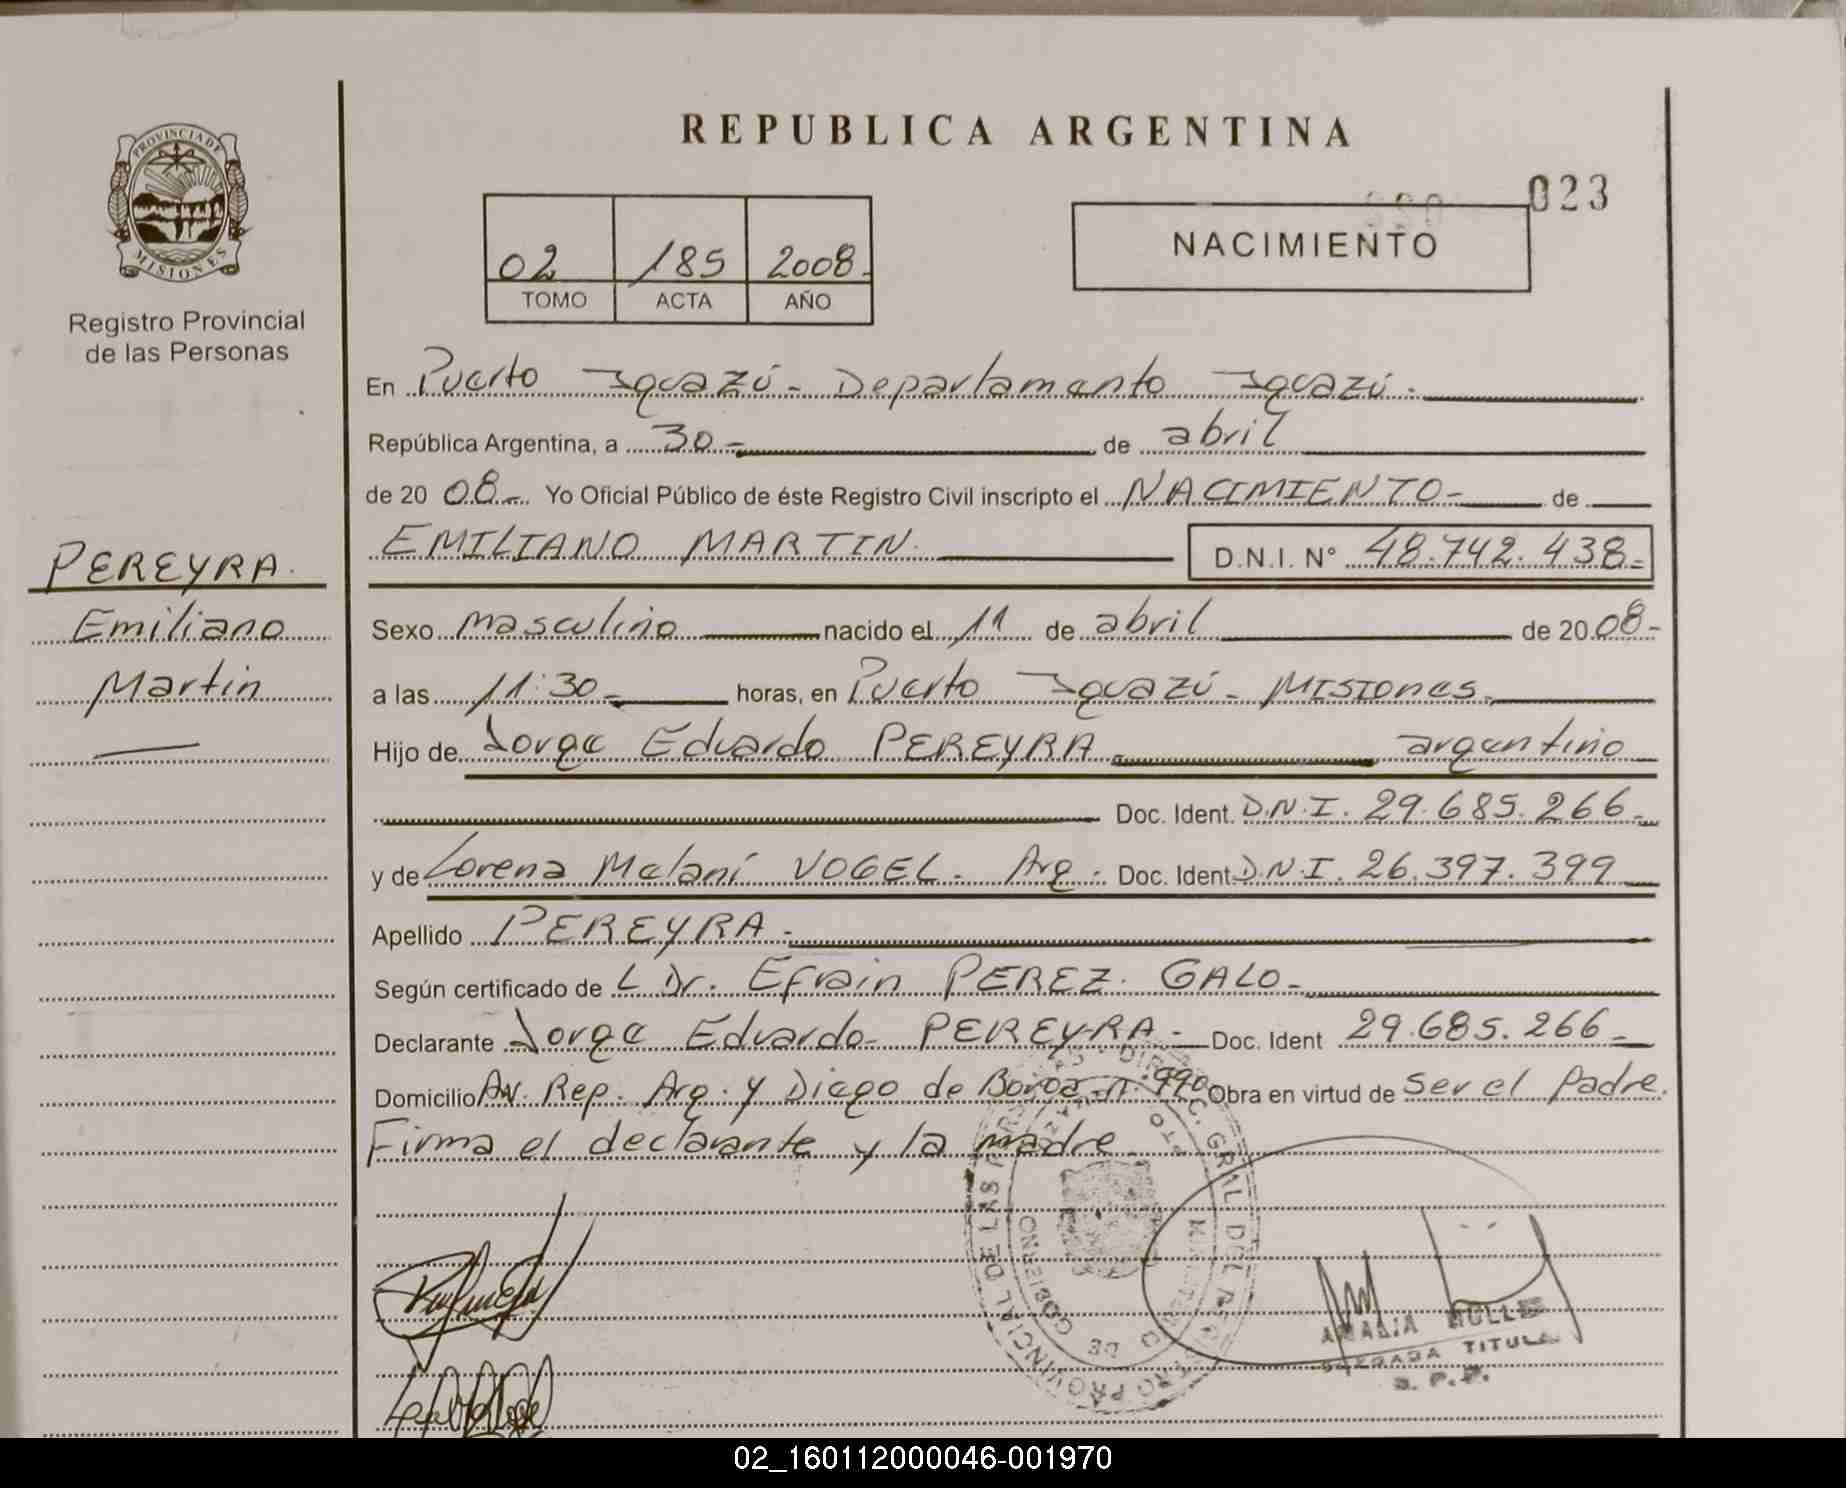 PROVINCIA DE
MISIONES
Registro Provincial
de las Personas
REPUBLICA ARGENTINA
023
02 185 2008.
TOMO ACTA AÑO
NACIMIENTO
En Puerto Iguazú - Departamento Iguazú.
República Argentina, a 30 - de abril
de 20 08 - Yo Oficial Público de éste Registro Civil inscripto el NACIMIENTO - de
EMILIANO MARTIN. D.N.I. N° 48.742.438 -
PEREYRA.
Emiliano
Martin
Sexo masculino nacido el 11 de abril de 20 08 -
a las 11:30 - horas, en Puerto Iguazú - Misiones.
Hijo de Jorge Eduardo PEREYRA argentino
Doc. Ident. D.N.I. 29.685.266 -
y de Lorena Melaní VOGEL - Arg. Doc. Ident. D.N.I. 26.397.399
Apellido PEREYRA -
Según certificado de L Dr. Efrain PEREZ GALO -
Declarante Jorge Eduardo PEREYRA - Doc. Ident 29.685.266 -
Domicilio Av. Rep. Arg. y Diego de Boroa n° 990 Obra en virtud de Ser el Padre.
Firma el declarante y la madre
PROVINCIAL DE LAS
GOBIERNO
DE
TITULA
02_160112000046-001970